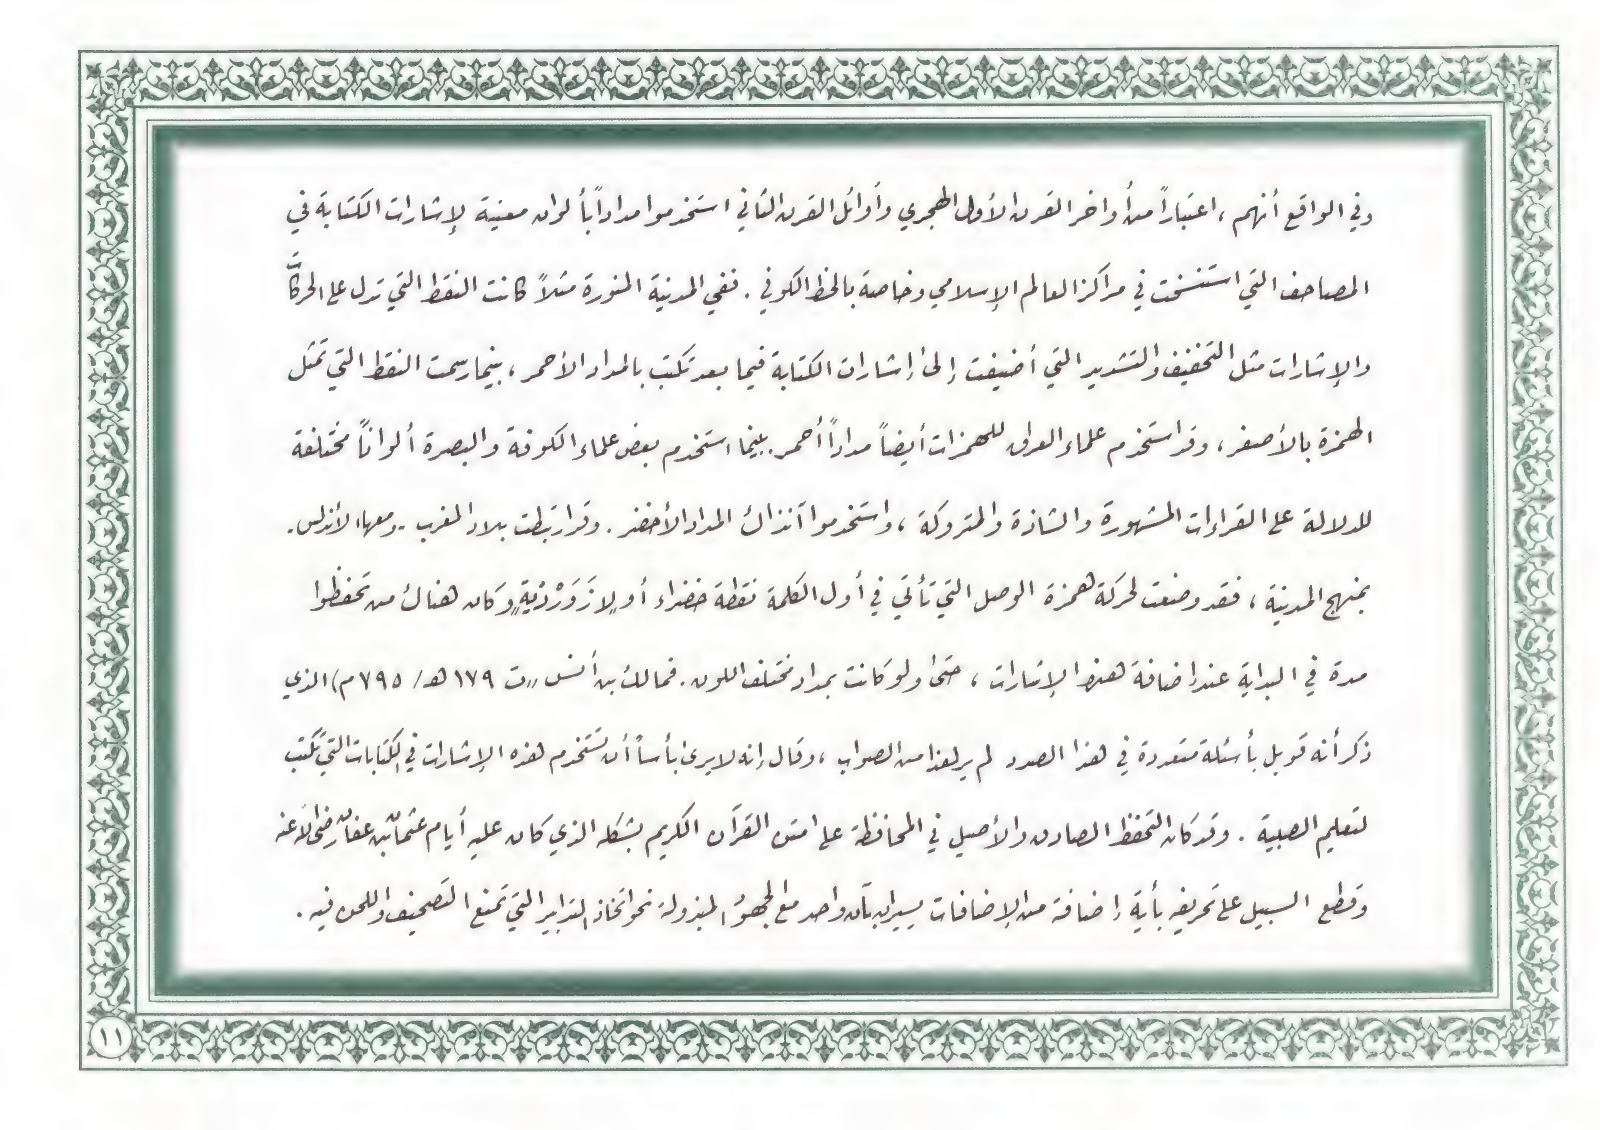 وفي الواقع أنهم ، اعتباراً من أواخر القرن الأول الهجري وأوائل القرن الثاني استخدموا مداداً بألوان معينة لإشارات الكتابة في
المصاحف التي استنسخت في مراكز العالم الإسلامي وخاصة بالخط الكوفي . ففي المدينة المنورة مثلاً كانت النقط التي تدل على الحركات
والإشارات مثل التخفيف والتشديد التي أضيفت إلى إشارات الكتابة فيما بعد تكتب بالمداد الأحمر ، بينما رسمت النقط التي تمثل
الهمزة بالأصفر ، وقد استخدم علماء العراق للهمزات أيضاً مداداً أحمر . بينما استخدم بعض علماء الكوفة والبصرة ألواناً مختلفة
للدلالة على القراءات المشهورة والشاذة والمتروكة ، واستخدموا آنذاك المداد الأخضر . وقد ارتبطت بلاد المغرب - ومعها الأندلس -
بمنهج المدينة ، فقد وضعت لحركة همزة الوصل التي تأتي في أول الكلمة نقطة خضراء أو "لازَوَرْدْيّة" وكان هناك من تحفظوا
مدة في البداية عند إضافة هذه الإشارات ، حتى ولو كانت بمداد مختلف اللون . فمالك بن أنس "ت ١٧٩ هـ / ٧٩٥ م) الذي
ذكر أنه قوبل بأسئلة متعددة في هذا الصدد لم ير هذا من الصواب ، وقال إنه لا يرى بأساً أن تستخدم هذه الإشارات في الكتابات التي تكتب
لتعليم الصبية . وقد كان التحفظ الصادق والأصيل في المحافظة على متن القرآن الكريم بشكله الذي كان عليه أيام عثمان بن عفان رضي الله عنه
وقطع السبيل على تحريفه بأية إضافة من الإضافات يسيران بآن واحد مع الجهود المبذولة نحو اتخاذ التدابير التي تمنع التصحيف واللحن فيه .
١١